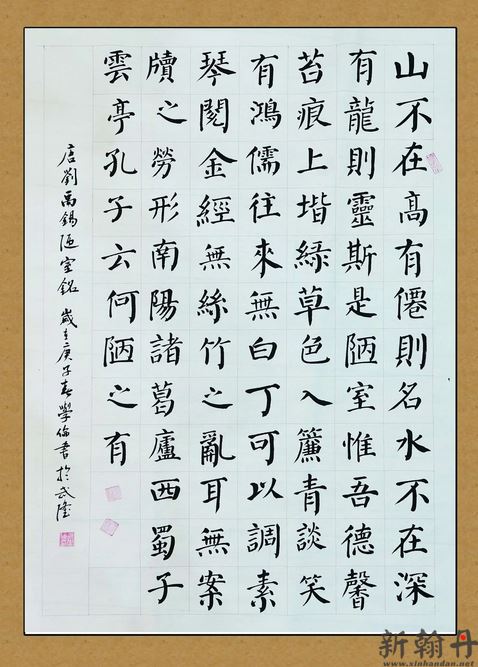 山不在高有僊則名水不在深
有龍則靈斯是陋室惟吾德馨
苔痕上堦綠草色入簾青談笑
有鴻儒往來無白丁可以調素
琴閱金經無絲竹之亂耳無案
牘之勞形南陽諸葛廬西蜀子
雲亭孔子云何陋之有
唐劉禹錫陋室銘 歲在庚子春學倫書於武隆
新翰丹
www.xinhandan.net